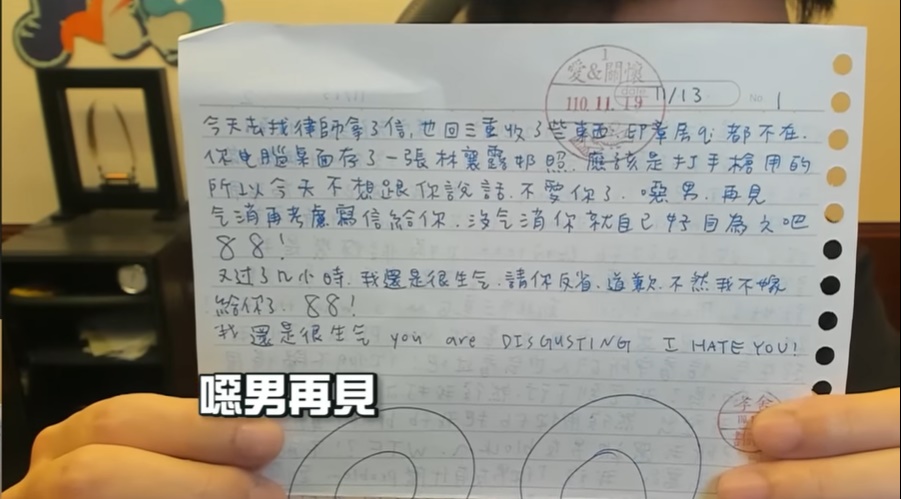 愛&關懷
110.11.19
11/13
No. 1
今天去找律師拿了信,也回三重收了些東西.
都不在.
你电腦桌面存了一張林襄露
照.應該是打手槍用的
所以今天不想跟你說話.不愛你了.噁男.再見
气消再考慮寫信給你.沒气消你就自己好自為之吧
88!
又过了几小時.我還是很生气.請你反省.道歉.不然我不嫁
給你了.88!
我還是很生气 you are DISGUSTING I HATE YOU!
噁男再見